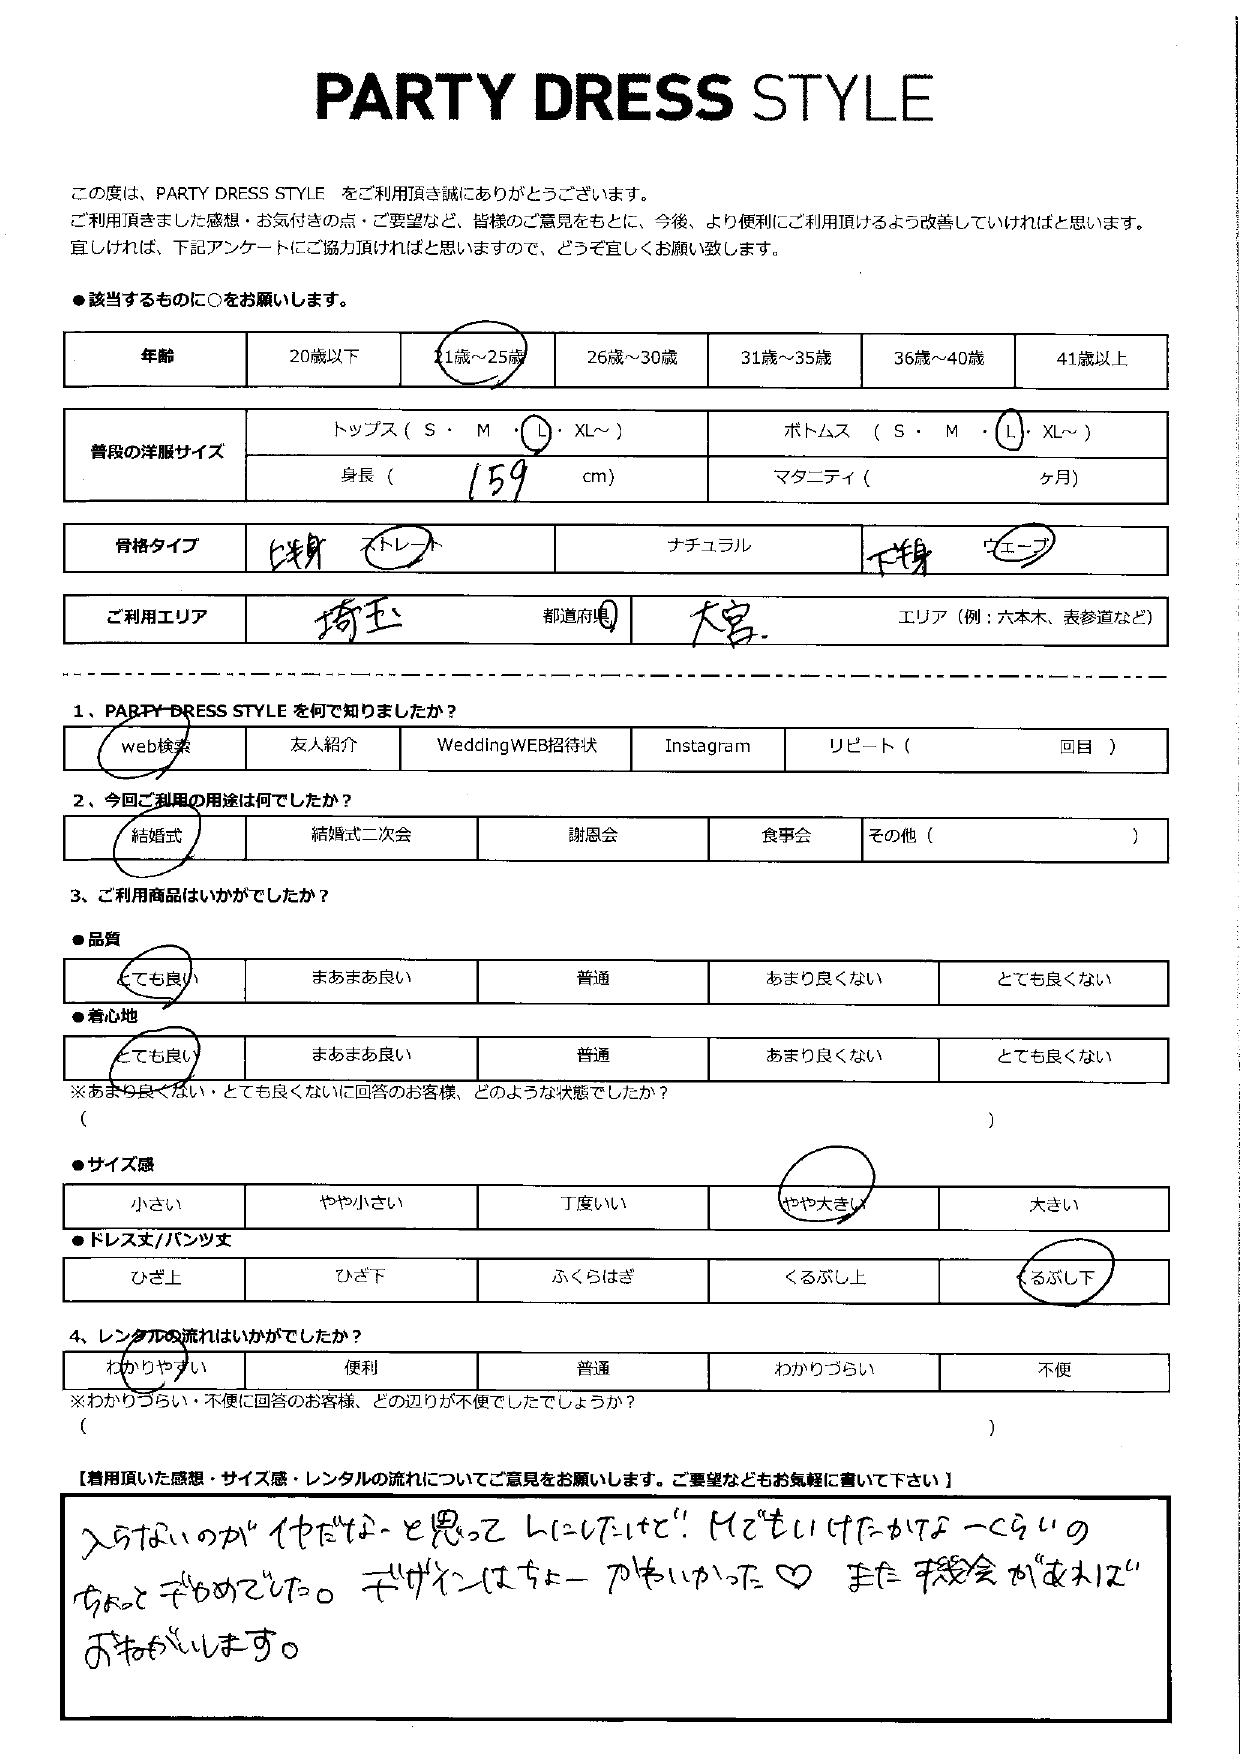 PARTY DRESS STYLE
この度は、PARTY DRESS STYLE をご利用頂き誠にありがとうございます。
ご利用頂きました感想・お気付きの点・ご要望など、皆様のご意見をもとに、今後、より便利にご利用頂けるよう改善していければと思います。
宜しければ、下記アンケートにご協力頂ければと思いますので、どうぞ宜しくお願い致します。
●該当するものに○をお願いします。
年齢 20歳以下 21歳～25歳 26歳～30歳 31歳～35歳 36歳～40歳 41歳以上
普段の洋服サイズ トップス ( S ・ M ・ L ・ XL～ ) ボトムス ( S ・ M ・ L ・ XL～ )
身長 ( 159 cm) マタニティ ( ヶ月)
骨格タイプ 上半身 ストレート ナチュラル 下半身 ウェーブ
ご利用エリア 埼玉 都道府県 大宮. エリア（例：六本木、表参道など）
1、PARTY DRESS STYLE を何で知りましたか？
web検索 友人紹介 WeddingWEB招待状 Instagram リピート ( 回目 )
2、今回ご利用の用途は何でしたか？
結婚式 結婚式二次会 謝恩会 食事会 その他 ( )
3、ご利用商品はいかがでしたか？
●品質
とても良い まあまあ良い 普通 あまり良くない とても良くない
●着心地
とても良い まあまあ良い 普通 あまり良くない とても良くない
※あまり良くない・とても良くないに回答のお客様、どのような状態でしたか？
( )
●サイズ感
小さい やや小さい 丁度いい やや大きい 大きい
●ドレス丈/パンツ丈
ひざ上 ひざ下 ふくらはぎ くるぶし上 くるぶし下
4、レンタルの流れはいかがでしたか？
わかりやすい 便利 普通 わかりづらい 不便
※わかりづらい・不便に回答のお客様、どの辺りが不便でしたでしょうか？
( )
【着用頂いた感想・サイズ感・レンタルの流れについてご意見をお願いします。ご要望などもお気軽に書いて下さい】
入らないのがイヤだなーと思ってLにしたけど! Mでもいけたかなーくらいの
ちょっとデかめでした。デザインはちょーかわいかった♡ また機会があれば
おねがいします。